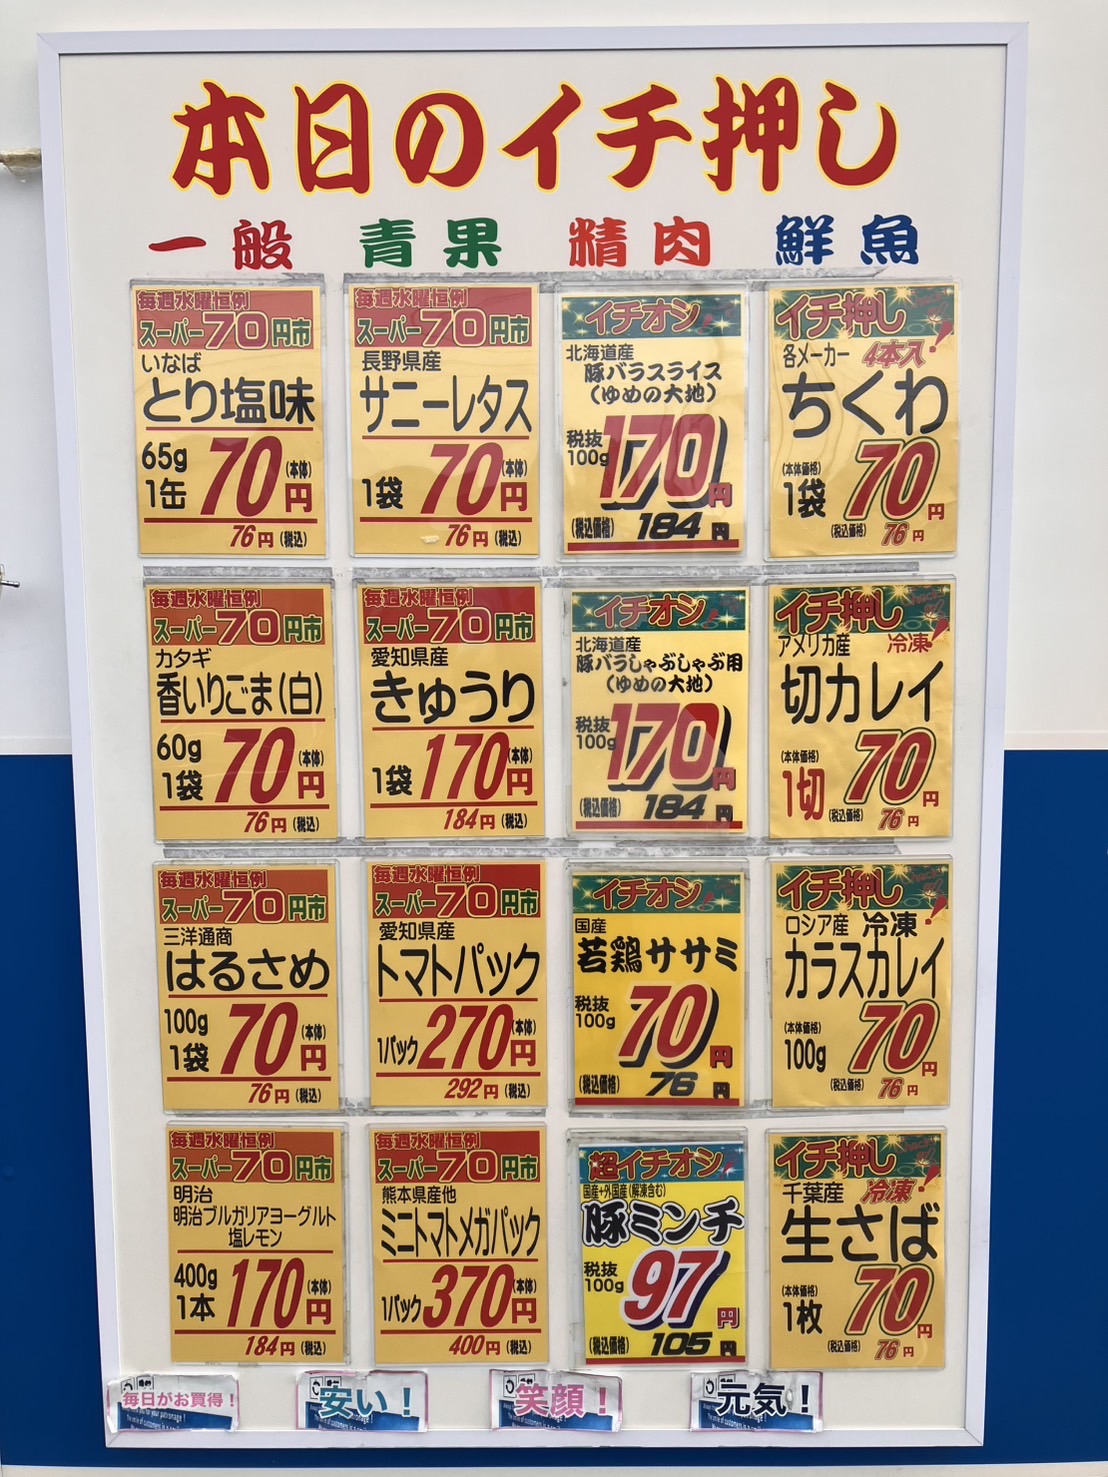 本日のイチ押し
一般
青果
精肉
鮮魚
毎週水曜恒例
スーパー70円市
いなば
とり塩味
65g
1缶
70円
(本体)
76円(税込)
毎週水曜恒例
スーパー70円市
長野県産
サニーレタス
1袋
70円
(本体)
76円(税込)
イチオシ!
北海道産
豚バラスライス
(ゆめの大地)
税抜
100g
170円
(税込価格)
184円
イチ押し!
各メーカー 4本入
ちくわ
(本体価格)
1袋
70円
(税込価格) 76円
毎週水曜恒例
スーパー70円市
カタギ
香いりごま(白)
60g
1袋
70円
(本体)
76円(税込)
毎週水曜恒例
スーパー70円市
愛知県産
きゅうり
1袋
170円
(本体)
184円(税込)
イチオシ!
北海道産
豚バラしゃぶしゃぶ用
(ゆめの大地)
税抜
100g
170円
(税込価格)
184円
イチ押し!
アメリカ産 冷凍
切カレイ
(本体価格)
1切
70円
(税込価格) 76円
毎週水曜恒例
スーパー70円市
三洋通商
はるさめ
100g
1袋
70円
(本体)
76円(税込)
毎週水曜恒例
スーパー70円市
愛知県産
トマトパック
1パック
270円
(本体)
292円(税込)
イチオシ!
国産
若鶏ササミ
税抜
100g
70円
(税込価格)
76円
イチ押し!
ロシア産 冷凍
カラスカレイ
(本体価格)
100g
70円
(税込価格) 76円
毎週水曜恒例
スーパー70円市
明治
明治ブルガリアヨーグルト
塩レモン
400g
1本
170円
(本体)
184円(税込)
毎週水曜恒例
スーパー70円市
熊本県産他
ミニトマトメガパック
1パック
370円
(本体)
400円(税込)
超イチオシ!
国産+外国産(解凍含む)
豚ミンチ
税抜
100g
97円
(税込価格)
105円
イチ押し!
千葉産 冷凍
生さば
(本体価格)
1枚
70円
(税込価格) 76円
毎日がお買得!
安い!
笑顔!
元気!